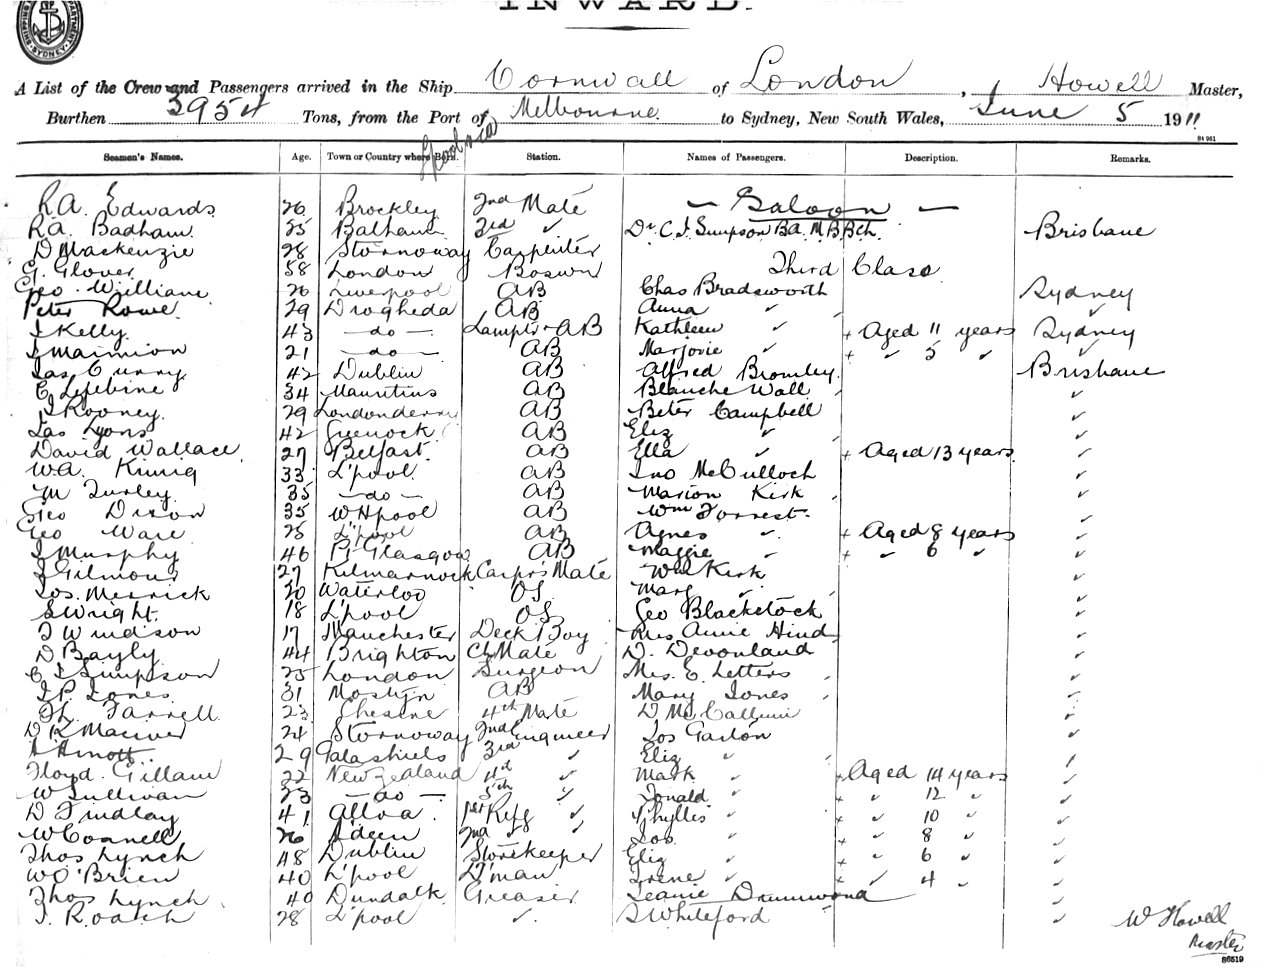 INWARD.
SHIPPING DEPARTMENT SYDNEY
A List of the Crew and Passengers arrived in the Ship Cornwall of London, Howell Master,
Burthen 3954 Tons, from the Port of Melbourne to Sydney, New South Wales, June 5 1911
84 961
Seamen's Names. Age. Town or Country where Born. Station. Names of Passengers. Description. Remarks.
R.A. Edwards 26 Brockley 2nd Mate — Saloon —
R.A. Badham 25 Balham 3rd " Dr. C.I. Simpson B.A. M.B. B.Ch. Brisbane
D Mackenzie 28 Stornoway Carpenter
G. Glover 58 London Boswn Third Class
Geo. William 26 Liverpool AB Chas Bradsworth Sydney
Peter Rowe 29 Drogheda AB Anna " "
J Kelly 43 — do — Lampts + AB Kathleen " + Aged 11 years Sydney
21 — do — AB Marjorie " + " 5 " "
Jas Curry 42 Dublin AB Alfred Bromley Brisbane
E Lefebine 34 Mauritius AB Blanche Wall "
J Rooney 29 Londonderry AB Peter Campbell "
Jas Lyons 42 Greenock AB Eliz " "
David Wallace 27 Belfast AB Ella " + Aged 13 years "
W.A. 33 L'pool AB Jno McCulloch "
M Turley 35 — do — AB Marion Kirk "
Geo Dixon 35 WHpool AB Wm Forrest "
Geo Ware 25 L'pool AB Agnes " + Aged 8 years "
J Murphy 46 Pt Glasgow AB Maggie " + " 6 " "
J Gilmour 27 Kilmarnock Carprs Mate Wm Kirk "
Jos. Merrick 20 Waterloo OS Marg " "
S Wright 18 L'pool OS Geo Blackstock "
J Windson 17 Manchester Deck Boy Mrs Annie Hind "
D Bayly 44 Brighton Ch Mate D. Devonland "
C I Simpson 25 London Surgeon Mrs. E. Letters "
J P Jones 31 Mostyn AB Mary Jones "
Farrell 23 4th Mate D McCallum "
D R Maciver 24 Stornoway 2nd Engineer Jos Garton "
A Arnott 29 Galashiels 3rd " Eliz " "
Floyd Gillam 22 New Zealand 4th " Mark " + Aged 14 years "
W Sullivan 23 — do — 5th " Donald " + " 12 " "
D Findlay 41 Alloa 1st Refg " Phyllis " + " 10 " "
W Connell 26 A'deen 2nd " " Jos " + " 8 " "
Thos Lynch 48 Dublin Storekeeper Eliz " + " 6 " "
W O'Brien 40 L'pool D'man Irene " + " 4 " "
Thos Lynch 40 Dundalk Greaser Jeanie Drummond "
J. Roach 28 L'pool " S Whiteford "
W Howell
Master
86519